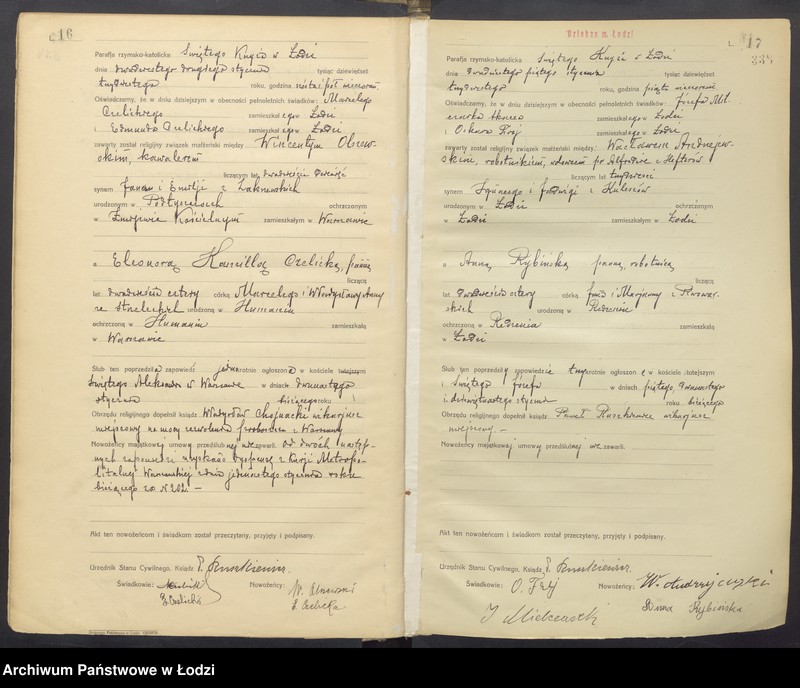 16
Parafja rzymsko-katolicka Świętego Krzyża w Łodzi
dnia dwudziestego drugiego stycznia tysiąc dziewięćset
trzydziestego roku, godzina szósta i pół wieczorem
Oświadczamy, że w dniu dzisiejszym w obecności pełnoletnich świadków: Marcelego
Czelickiego zamieszkałego w Łodzi
i Edmunda Czelickiego zamieszkałego w Łodzi
zawarty został religijny związek małżeński między: Wincentym
kawalerem
liczącym lat dwadzieścia
synem Jana i Emilji z
urodzonym w ochrzczonym
w Kościelnym zamieszkałym w Warszawie
a Eleonorą Kamillą Czelicką, panną
liczącą
lat dwadzieścia cztery córką Marcelego i Władysławy Anny
ze urodzoną w Humaniu
ochrzczoną w Humaniu zamieszkałą
w Warszawie
Ślub ten poprzedziła zapowiedź jednorotnie ogłoszona w kościele tutejszym
świętego Aleksandra w Warszawie w dniach: dwunastego
stycznia bieżącego roku
Obrzędu religijnego dopełnił ksiądz Władysław Chojnacki wikarjusz
miejscowy na mocy zezwolenia proboszcza z Warszawy
Nowożeńcy majątkowej umowy przedślubnej nie zawarli. Od dwóch następ-
nych zapowiedzi uzyskano dyspensę z Kurji Metropo-
litalnej Warszawskiej z dnia jedenastego stycznia roku
bieżącego za N 202. —
Akt ten nowożeńcom i świadkom został przeczytany, przyjęty i podpisany.
Urzędnik Stanu Cywilnego, Ksiądz
Świadkowie: Nowożeńcy:
E. Czelicki E. Czelicka
Urzędu m. Łodzi
L. 17
Parafja rzymsko-katolicka Świętego Krzyża w Łodzi
dnia dwudziestego piątego stycznia tysiąc dziewięćset
trzydziestego roku, godzina piąta wieczorem
Oświadczamy, że w dniu dzisiejszym w obecności pełnoletnich świadków: Józefa
zamieszkałego w Łodzi
i Oskara Frej zamieszkałego w Łodzi
zawarty został religijny związek małżeński między: Wacławem Andrzejew-
skim, robotnikiem, wdowcem po Alfredzie z
liczącym lat trzydzieści
synem i Jadwigi z
urodzonym w Łodzi ochrzczonym
w Łodzi zamieszkałym w Łodzi
a Anną Rybińską panną, robotnicą
liczącą
lat dwadzieścia cztery córką Jana i Marjanny z
skich urodzoną w
ochrzczoną w zamieszkałą
w Łodzi
Ślub ten poprzedziły zapowiedzie trzyrotnie ogłoszone w kościele tutejszym
i Świętego Józefa w dniach: piątego, dwunastego
i dziewiętnastego stycznia roku bieżącego
Obrzędu religijnego dopełnił ksiądz Paweł wikarjusz
miejscowy. —
Nowożeńcy majątkowej umowy przedślubnej nie zawarli.
Akt ten nowożeńcom i świadkom został przeczytany, przyjęty i podpisany.
Urzędnik Stanu Cywilnego, Ksiądz
Świadkowie: O. Frej Nowożeńcy: W. Andrzejewski
Anna Rybińska
Archiwum Państwowe w Łodzi